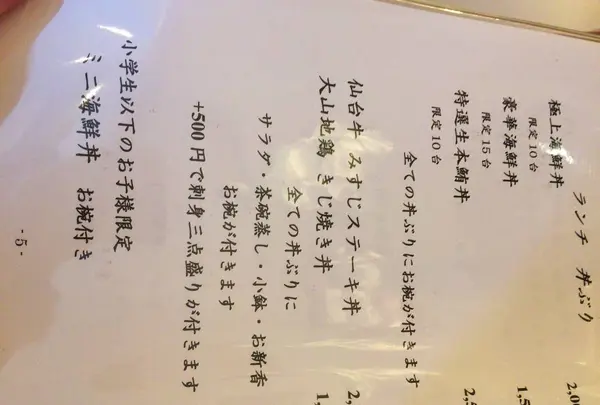 ランチ 丼ぶり
極上海鮮丼
限定10台
豪華海鮮丼
限定15台
特選生本鮪丼
限定10台
全ての丼ぶりにお椀が付きます
仙台牛 みすじステーキ丼
大山地鶏 きじ焼き丼
全ての丼ぶりに
サラダ・茶碗蒸し・小鉢・お新香
お椀が付きます
+500円で刺身三点盛りが付きます
小学生以下のお子様限定
ミニ海鮮丼 お椀付き
- 5 -